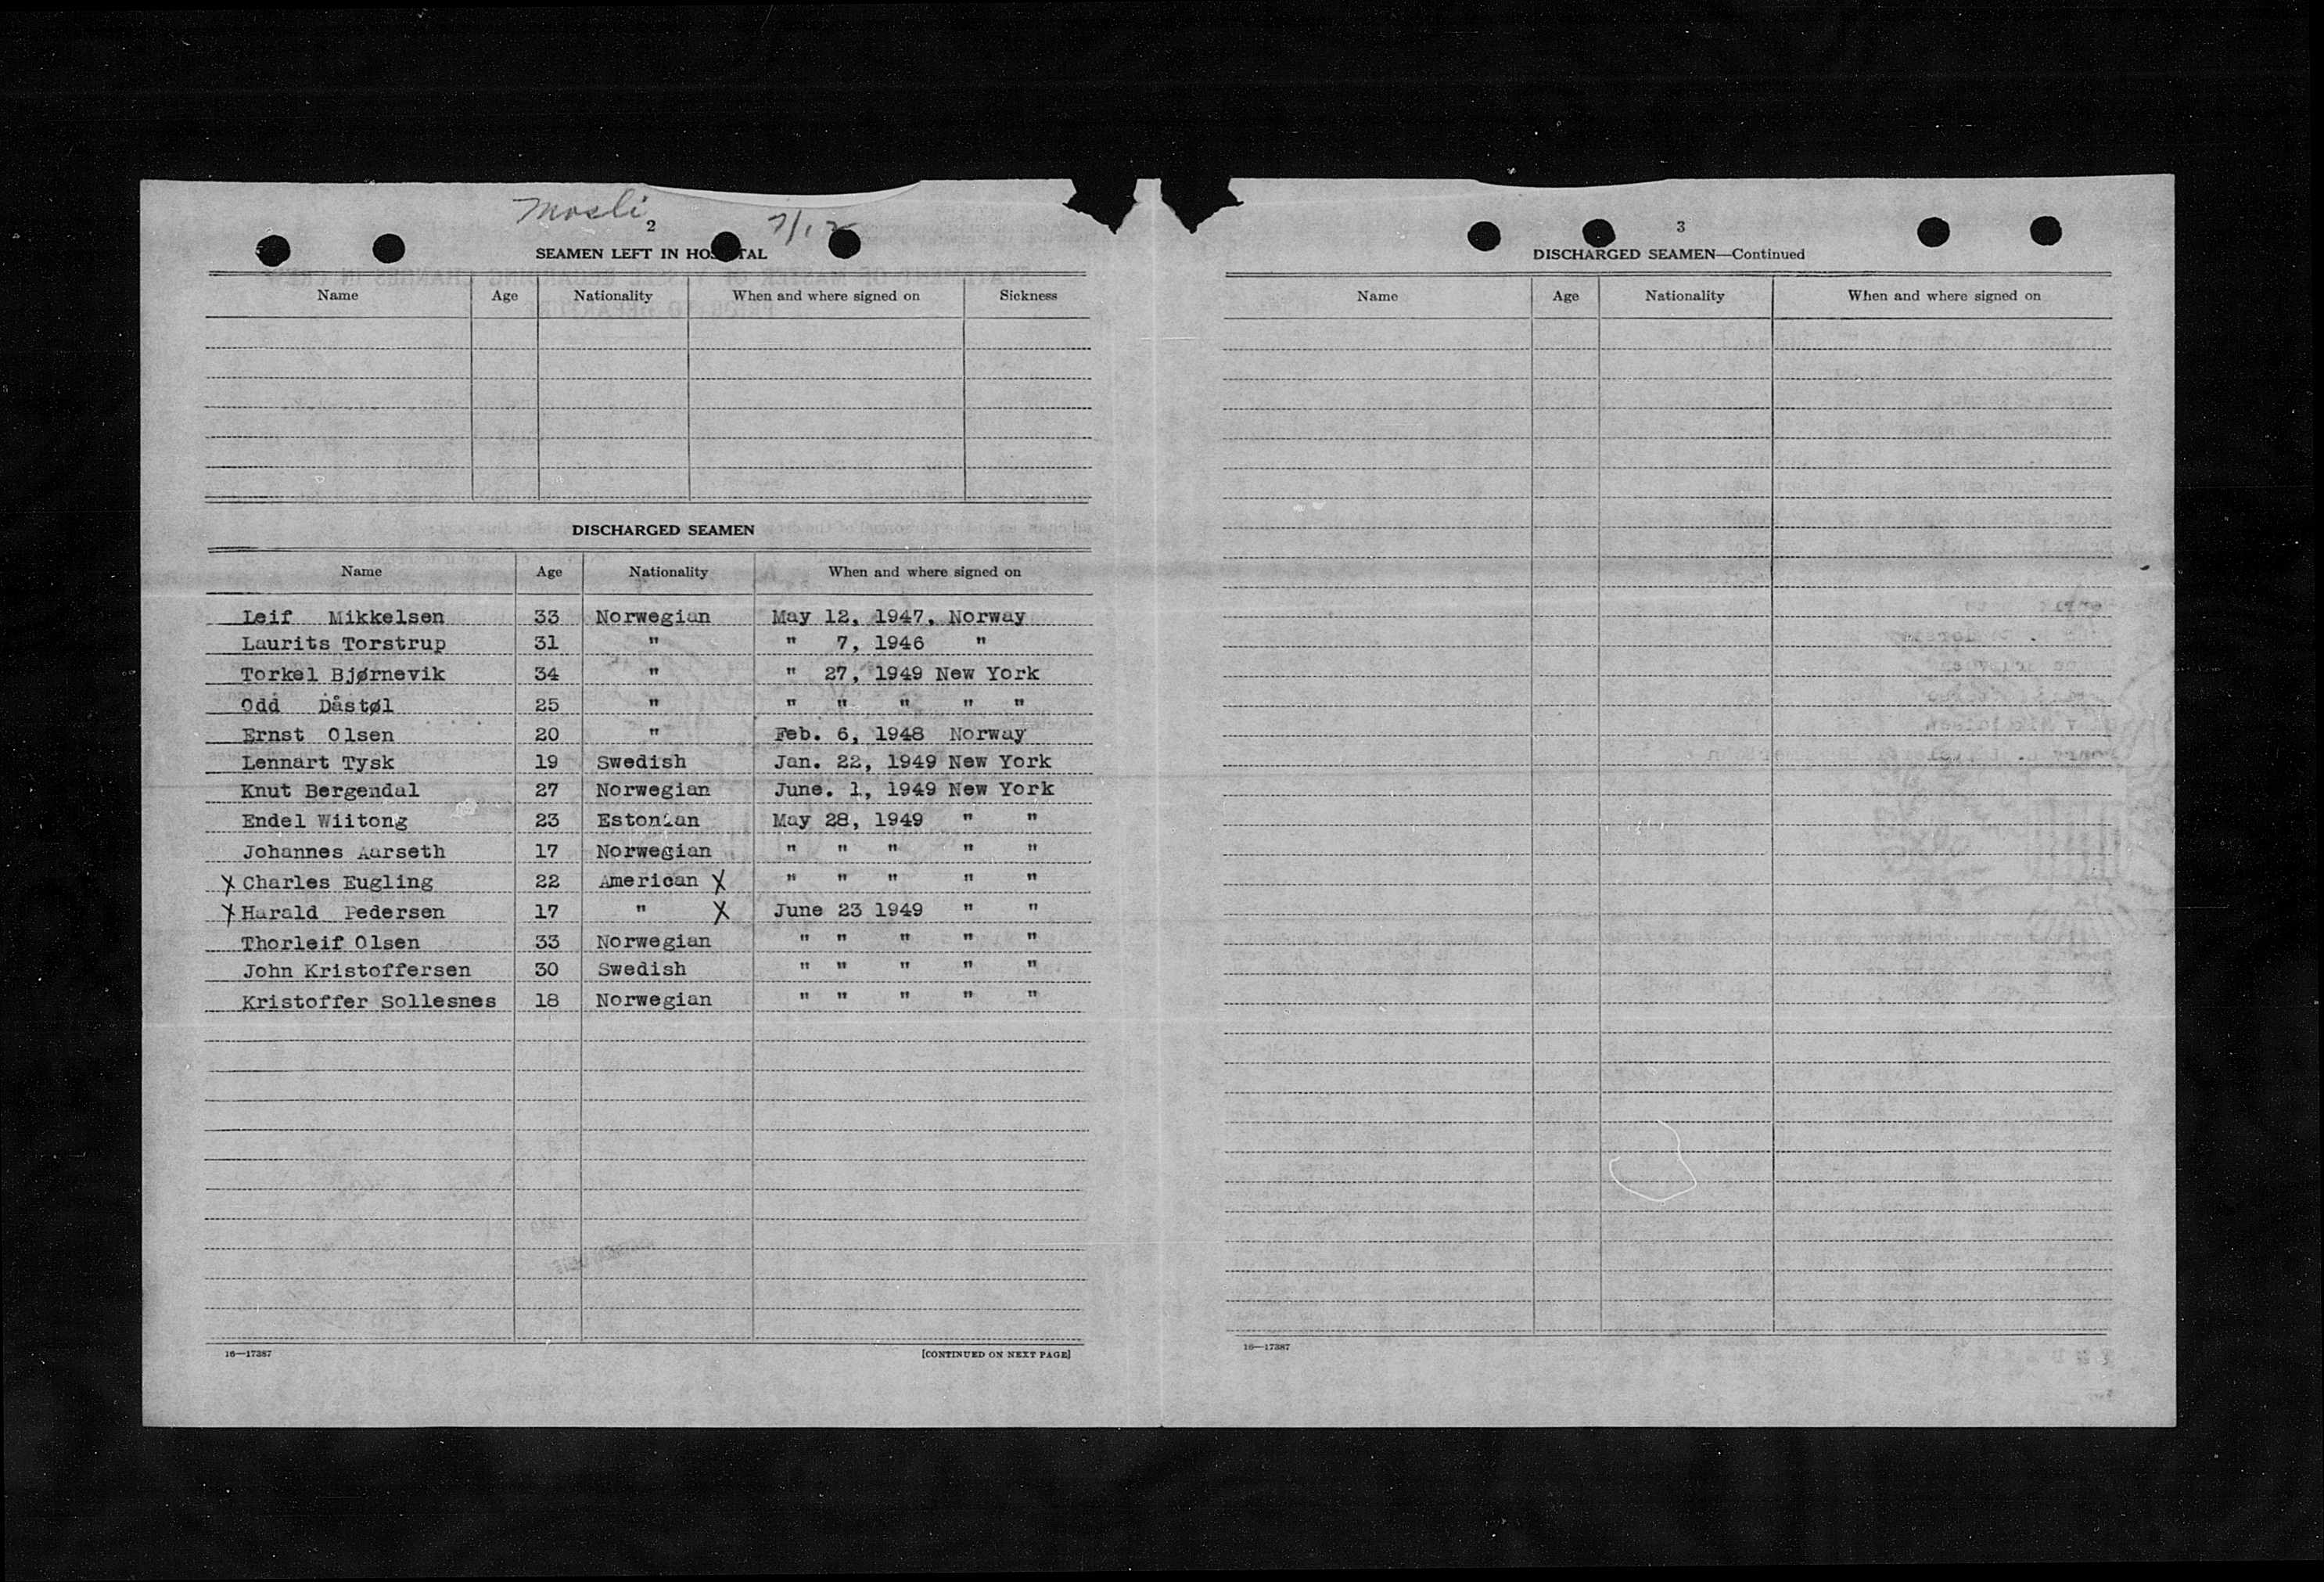 Mosli
2
7/12
SEAMEN LEFT IN HOSPITAL
Name Age Nationality When and where signed on Sickness
DISCHARGED SEAMEN
Name Age Nationality When and where signed on
Leif Mikkelsen 33 Norwegian May 12, 1947, Norway
Laurits Torstrup 31 " " 7, 1946 "
Torkel Bjørnevik 34 " " 27, 1949 New York
Odd Dåstøl 25 " " " " " "
Ernst Olsen 20 " Feb. 6, 1948 Norway
Lennart Tysk 19 Swedish Jan. 22, 1949 New York
Knut Bergendal 27 Norwegian June. 1, 1949 New York
Endel Wiitong 23 Estonian May 28, 1949 " "
Johannes Aarseth 17 Norwegian " " " " "
X Charles Eugling 22 American X " " " " "
X Harald Pedersen 17 " X June 23 1949 " "
Thorleif Olsen 33 Norwegian " " " " "
John Kristoffersen 30 Swedish " " " " "
Kristoffer Sollesnes 18 Norwegian " " " " "
16—17387 [CONTINUED ON NEXT PAGE]
3
DISCHARGED SEAMEN—Continued
Name Age Nationality When and where signed on
16—17387